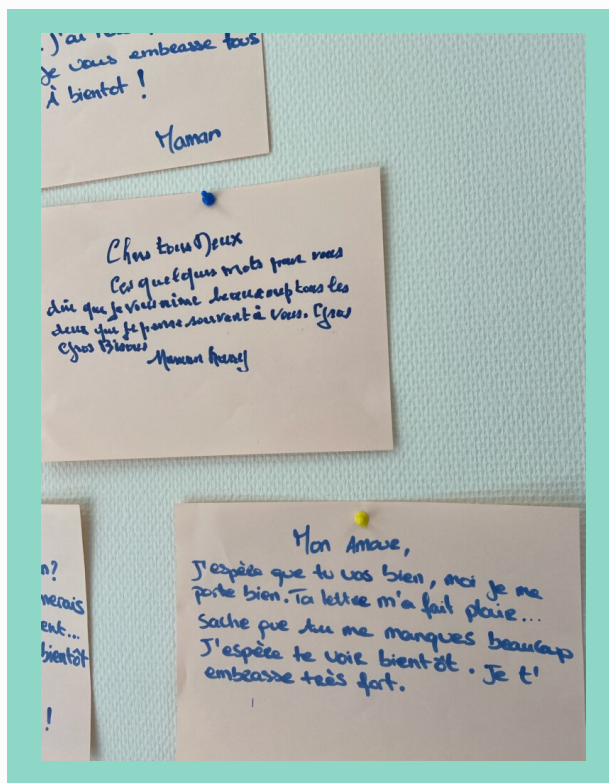 J'ai
Je vous embrasse tous
À bientot !
Maman
Chers tous Deux
Ces quelques mots pour vous
dire que je vous aime beaucoup tous les
deux que je pense souvent à vous. Gros
Gros Bisous
Maman
n?
merais
ent...
bientôt
!
Mon Amour,
J'espère que tu vas bien, moi je me
porte bien. Ta lettre m'a fait plaisir...
sache que tu me manques beaucoup
J'espère te voir bientôt. Je t'
embrasse très fort.